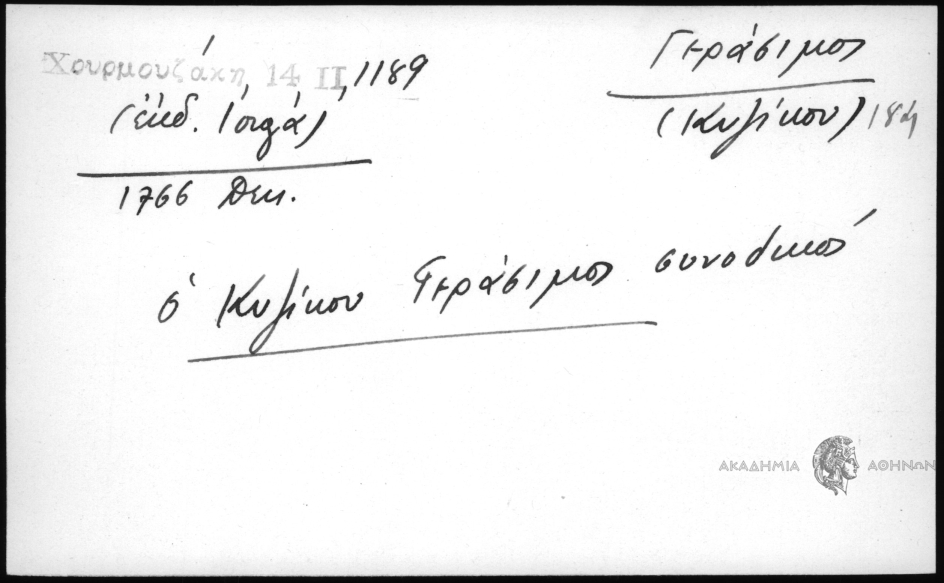 Χουρμουζάκη, 14 II, 1189
(ἐκδ. Ἰοργά)
1766 Δεκ.
Γεράσιμος
(Κυζίκου)
ὁ Κυζίκου Γεράσιμος συνοδικός
ΑΚΑΔΗΜΙΑ ΑΘΗΝΩΝ